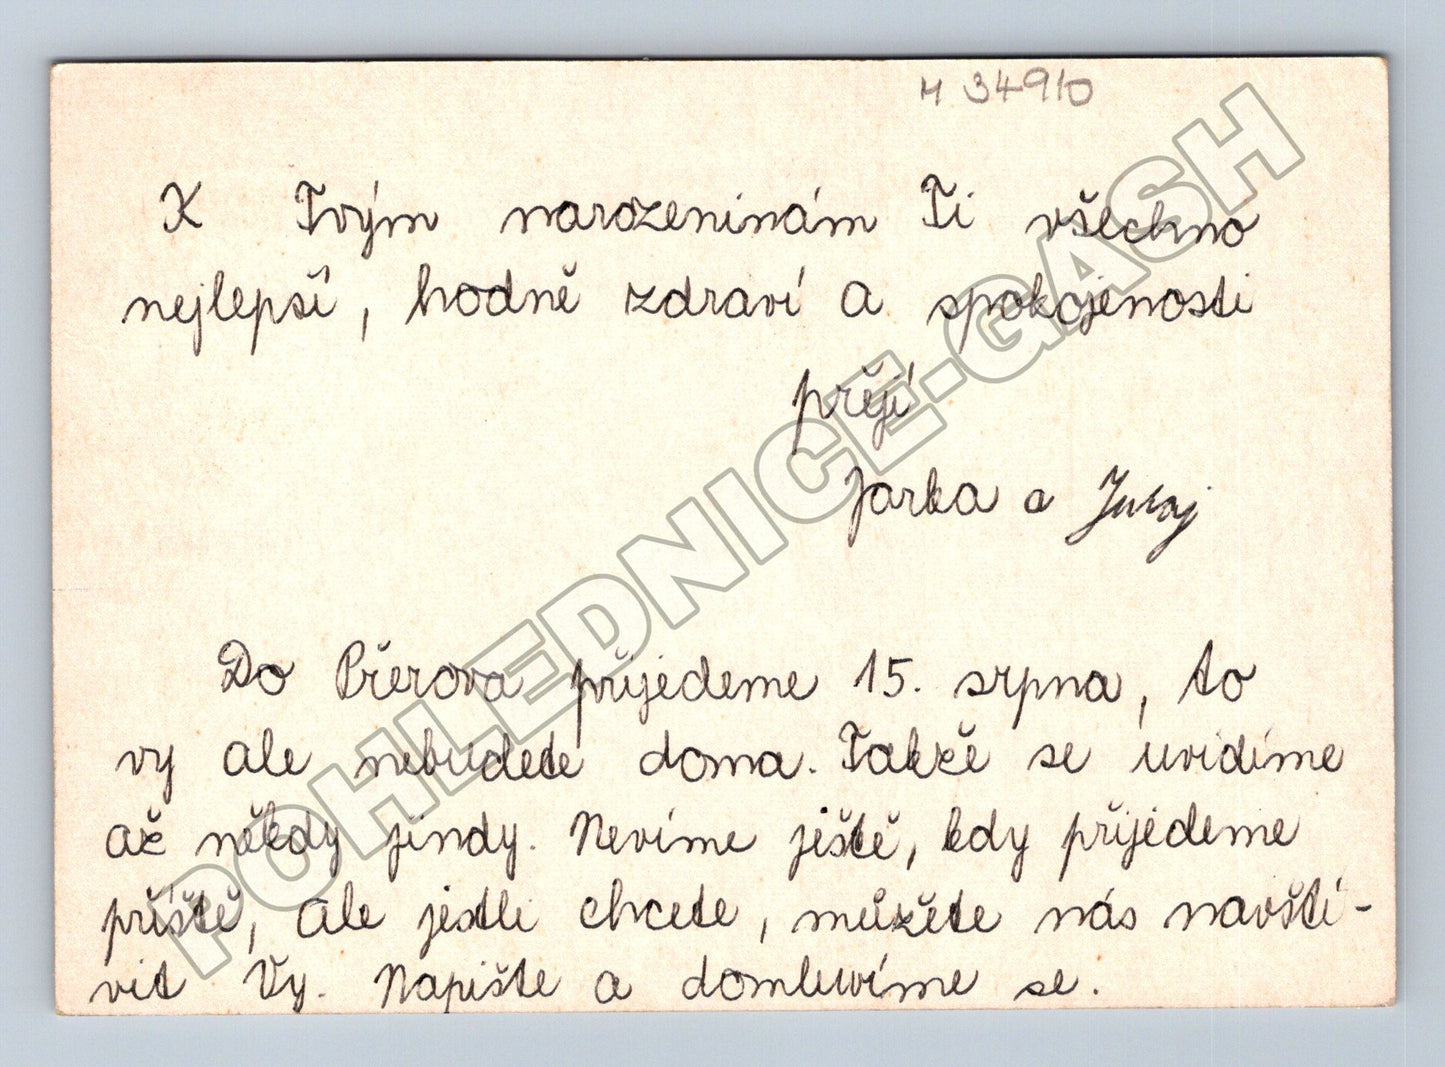 M 34910
K Tvým narozeninám Ti všechno
nejlepší, hodně zdraví a spokojenosti
přejí
Jarka a Juraj
Do Přerova přijedeme 15. srpna, to
vy ale nebudete doma. Takže se uvidíme
až někdy jindy. Nevíme ještě, kdy přijedeme
příště, ale jestli chcete, můžete nás navští-
vit Vy. Napište a domluvíme se.
POHLEDNICE-GASH